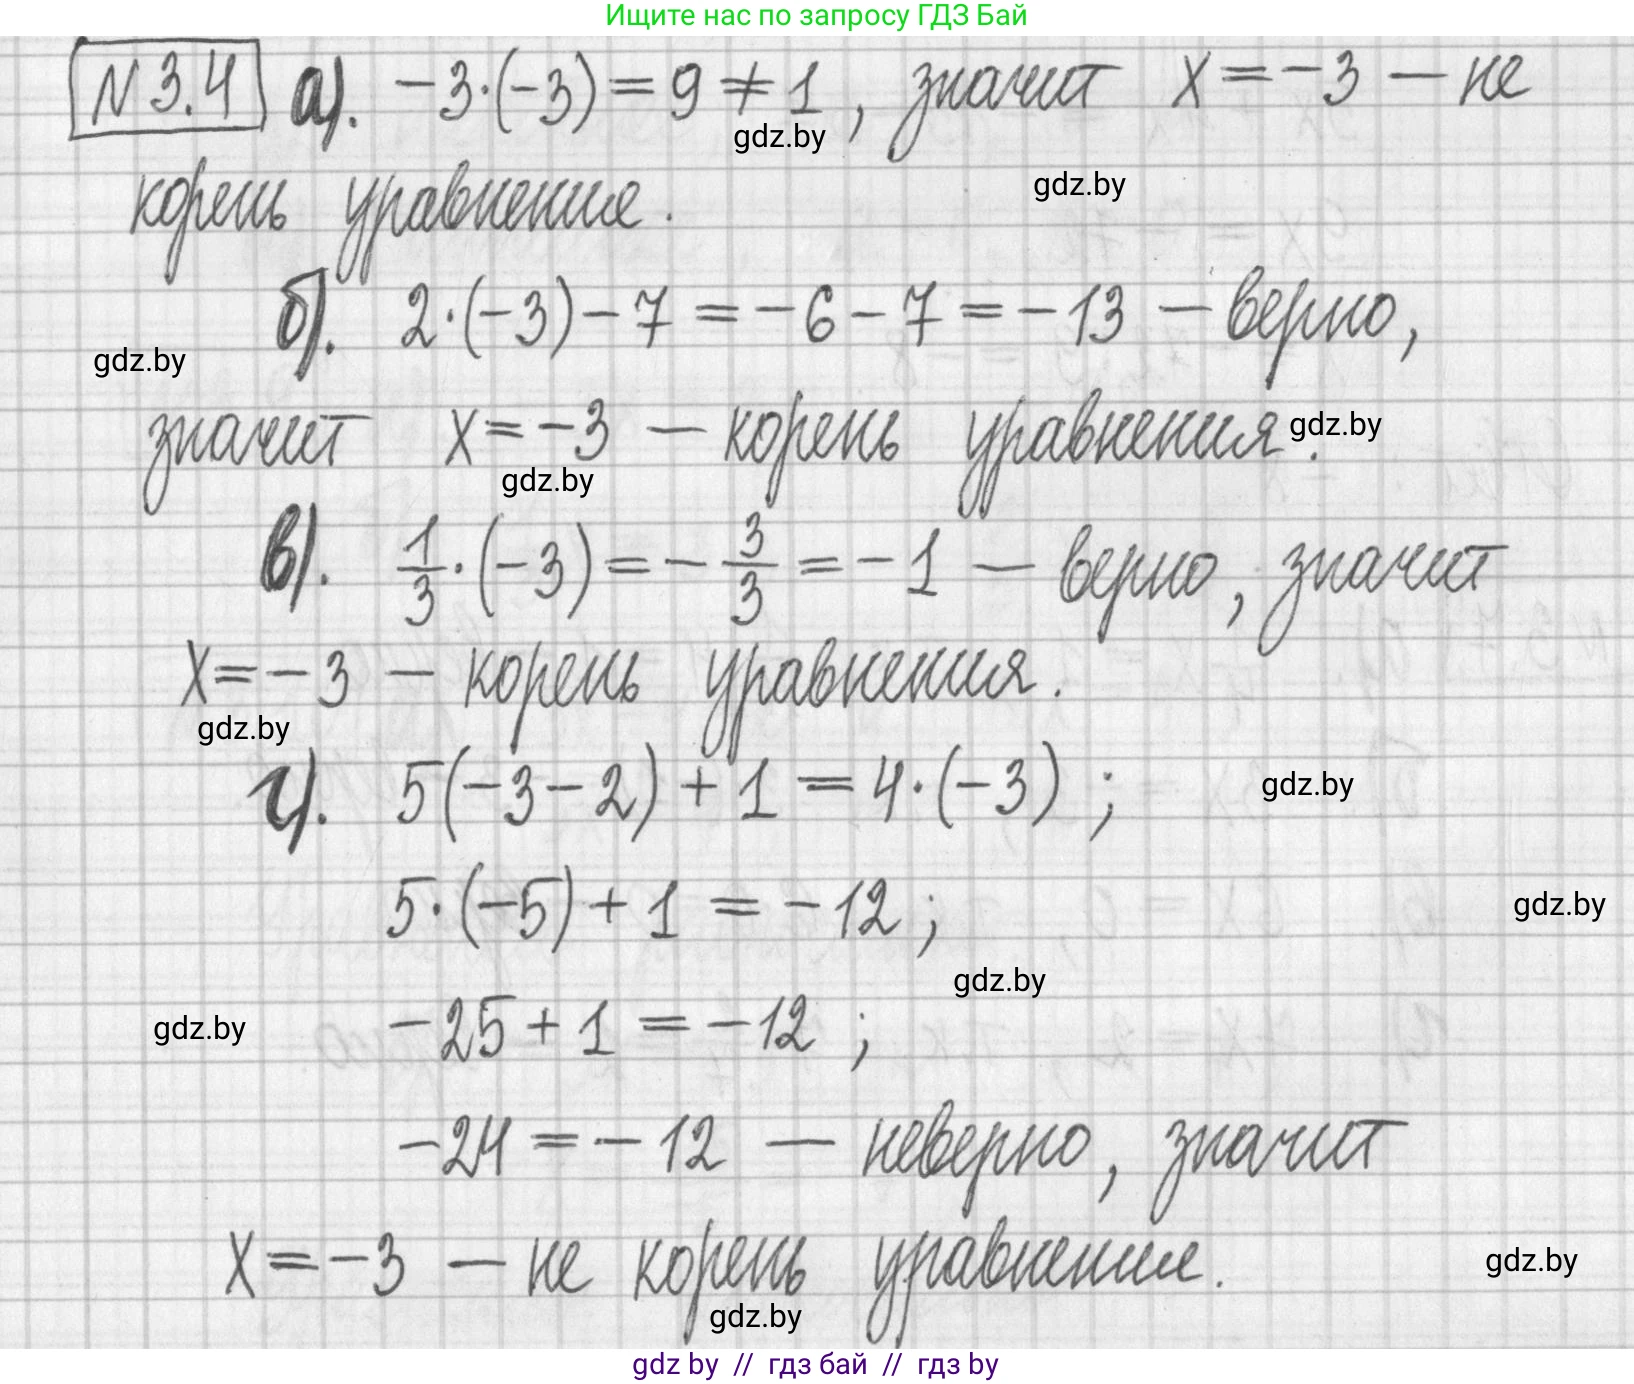 Ищите нас по запросу ГДЗ Бай
N 3.4 а). -3·(-3)=9≠1, значит x=-3 — не
gdz.by
gdz.by
корень уравнение.
б). 2·(-3)-7=-6-7=-13 — верно,
gdz.by
значит x=-3 — корень уравнения.
gdz.by
gdz.by
в). 1/3·(-3)=-3/3=-1 — верно, значит
x=-3 — корень уравнения.
gdz.by
г). 5(-3-2)+1=4·(-3);
gdz.by
5·(-5)+1=-12;
gdz.by
gdz.by
-25+1=-12;
gdz.by
-24=-12 — неверно, значит
x=-3 — не корень уравнение.
gdz.by
gdz.by
gdz by // гдз бай // гдз by